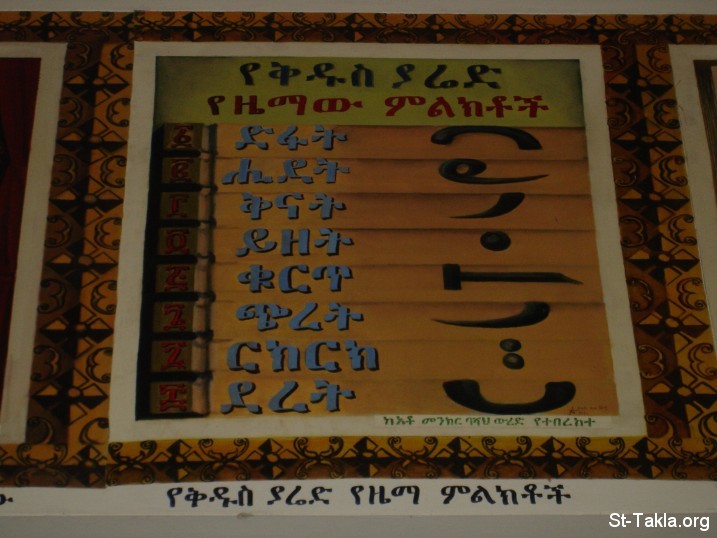 የቅዱስ ያሬድ
የዜማው ምልክቶች
፩ ድፋት
፪ ሒደት
፫ ቅናት
፬ ይዘት
፭ ቁርጥ
፮ ጭረት
፯ ርክርክ
፰ ደረት
ከአቶ መንክር ወልድ የተበረከተ
የቅዱስ ያሬድ የዜማ ምልክቶች
St-Takla.org